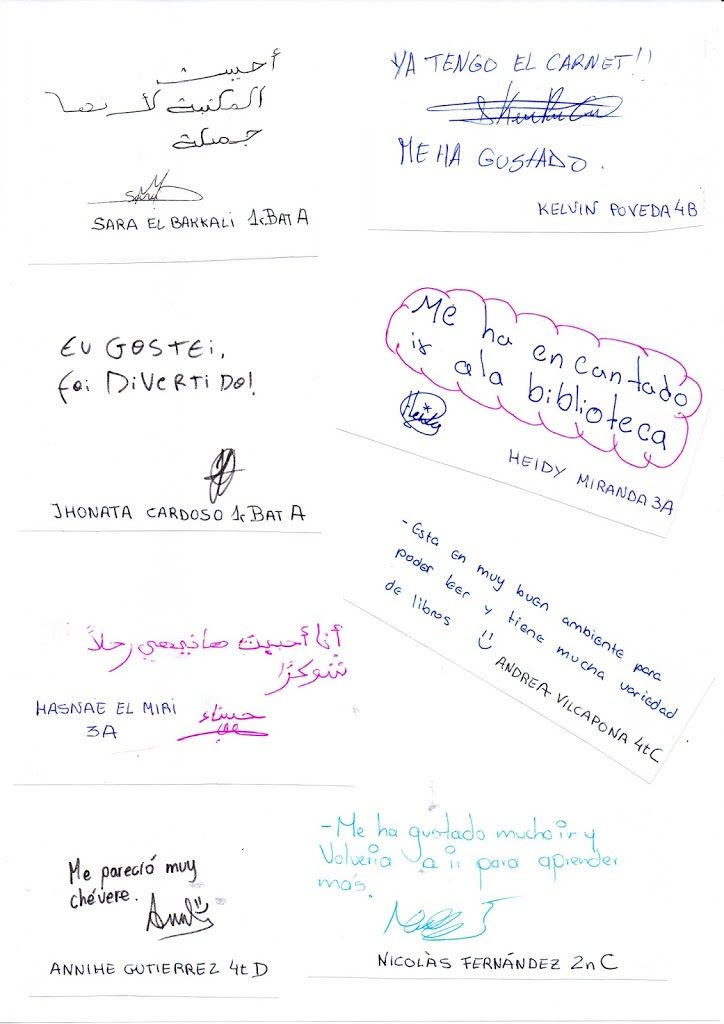 أحببت
المكتبة لأنها
جميلة
Sara
SARA EL BAKKALI 1r BAT A
YA TENGO EL CARNET!!
ME HA GUSTADO.
KELVIN POVEDA 4B
EU GOSTEi,
foi DiVERTiDO!
JHONATA CARDOSO 1r BAT A
Me ha encantado
ir ala biblioteca
Heidy
HEIDY MIRANDA 3A
- Esta en muy buen ambiente para
poder leer y tiene mucha variedad
de libros
ANDREA VILCAPONA 4t C
أنا أحببت هاذيهي رحلاً
شوكرًا
حسناء
HASNAE EL MIRI
3A
Me pareció muy
chévere.
ANNIHE GUTIERREZ 4t D
- Me ha gustado mucho ir y
Volveria a ir para aprender
más.
NICOLÀS FERNÁNDEZ 2n C